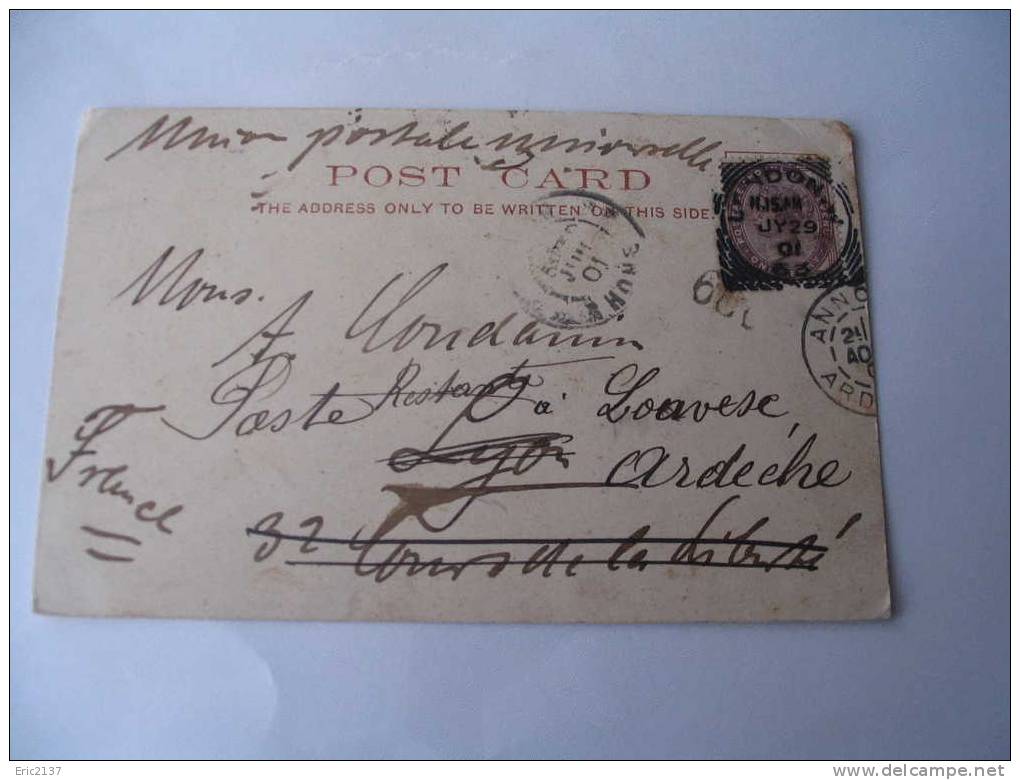 Union postale universelle
POST CARD
THE ADDRESS ONLY TO BE WRITTEN ON THIS SIDE.
LONDON
11.15AM
JY29
01
63
JUIL
01
ANNO
21
AO
ARD
Mons.
A. Condamin
Poste Restante à Loavesc,
Lyon Ardèche
France
32 Cours de la Liberté
Eric2137
delcampe.net